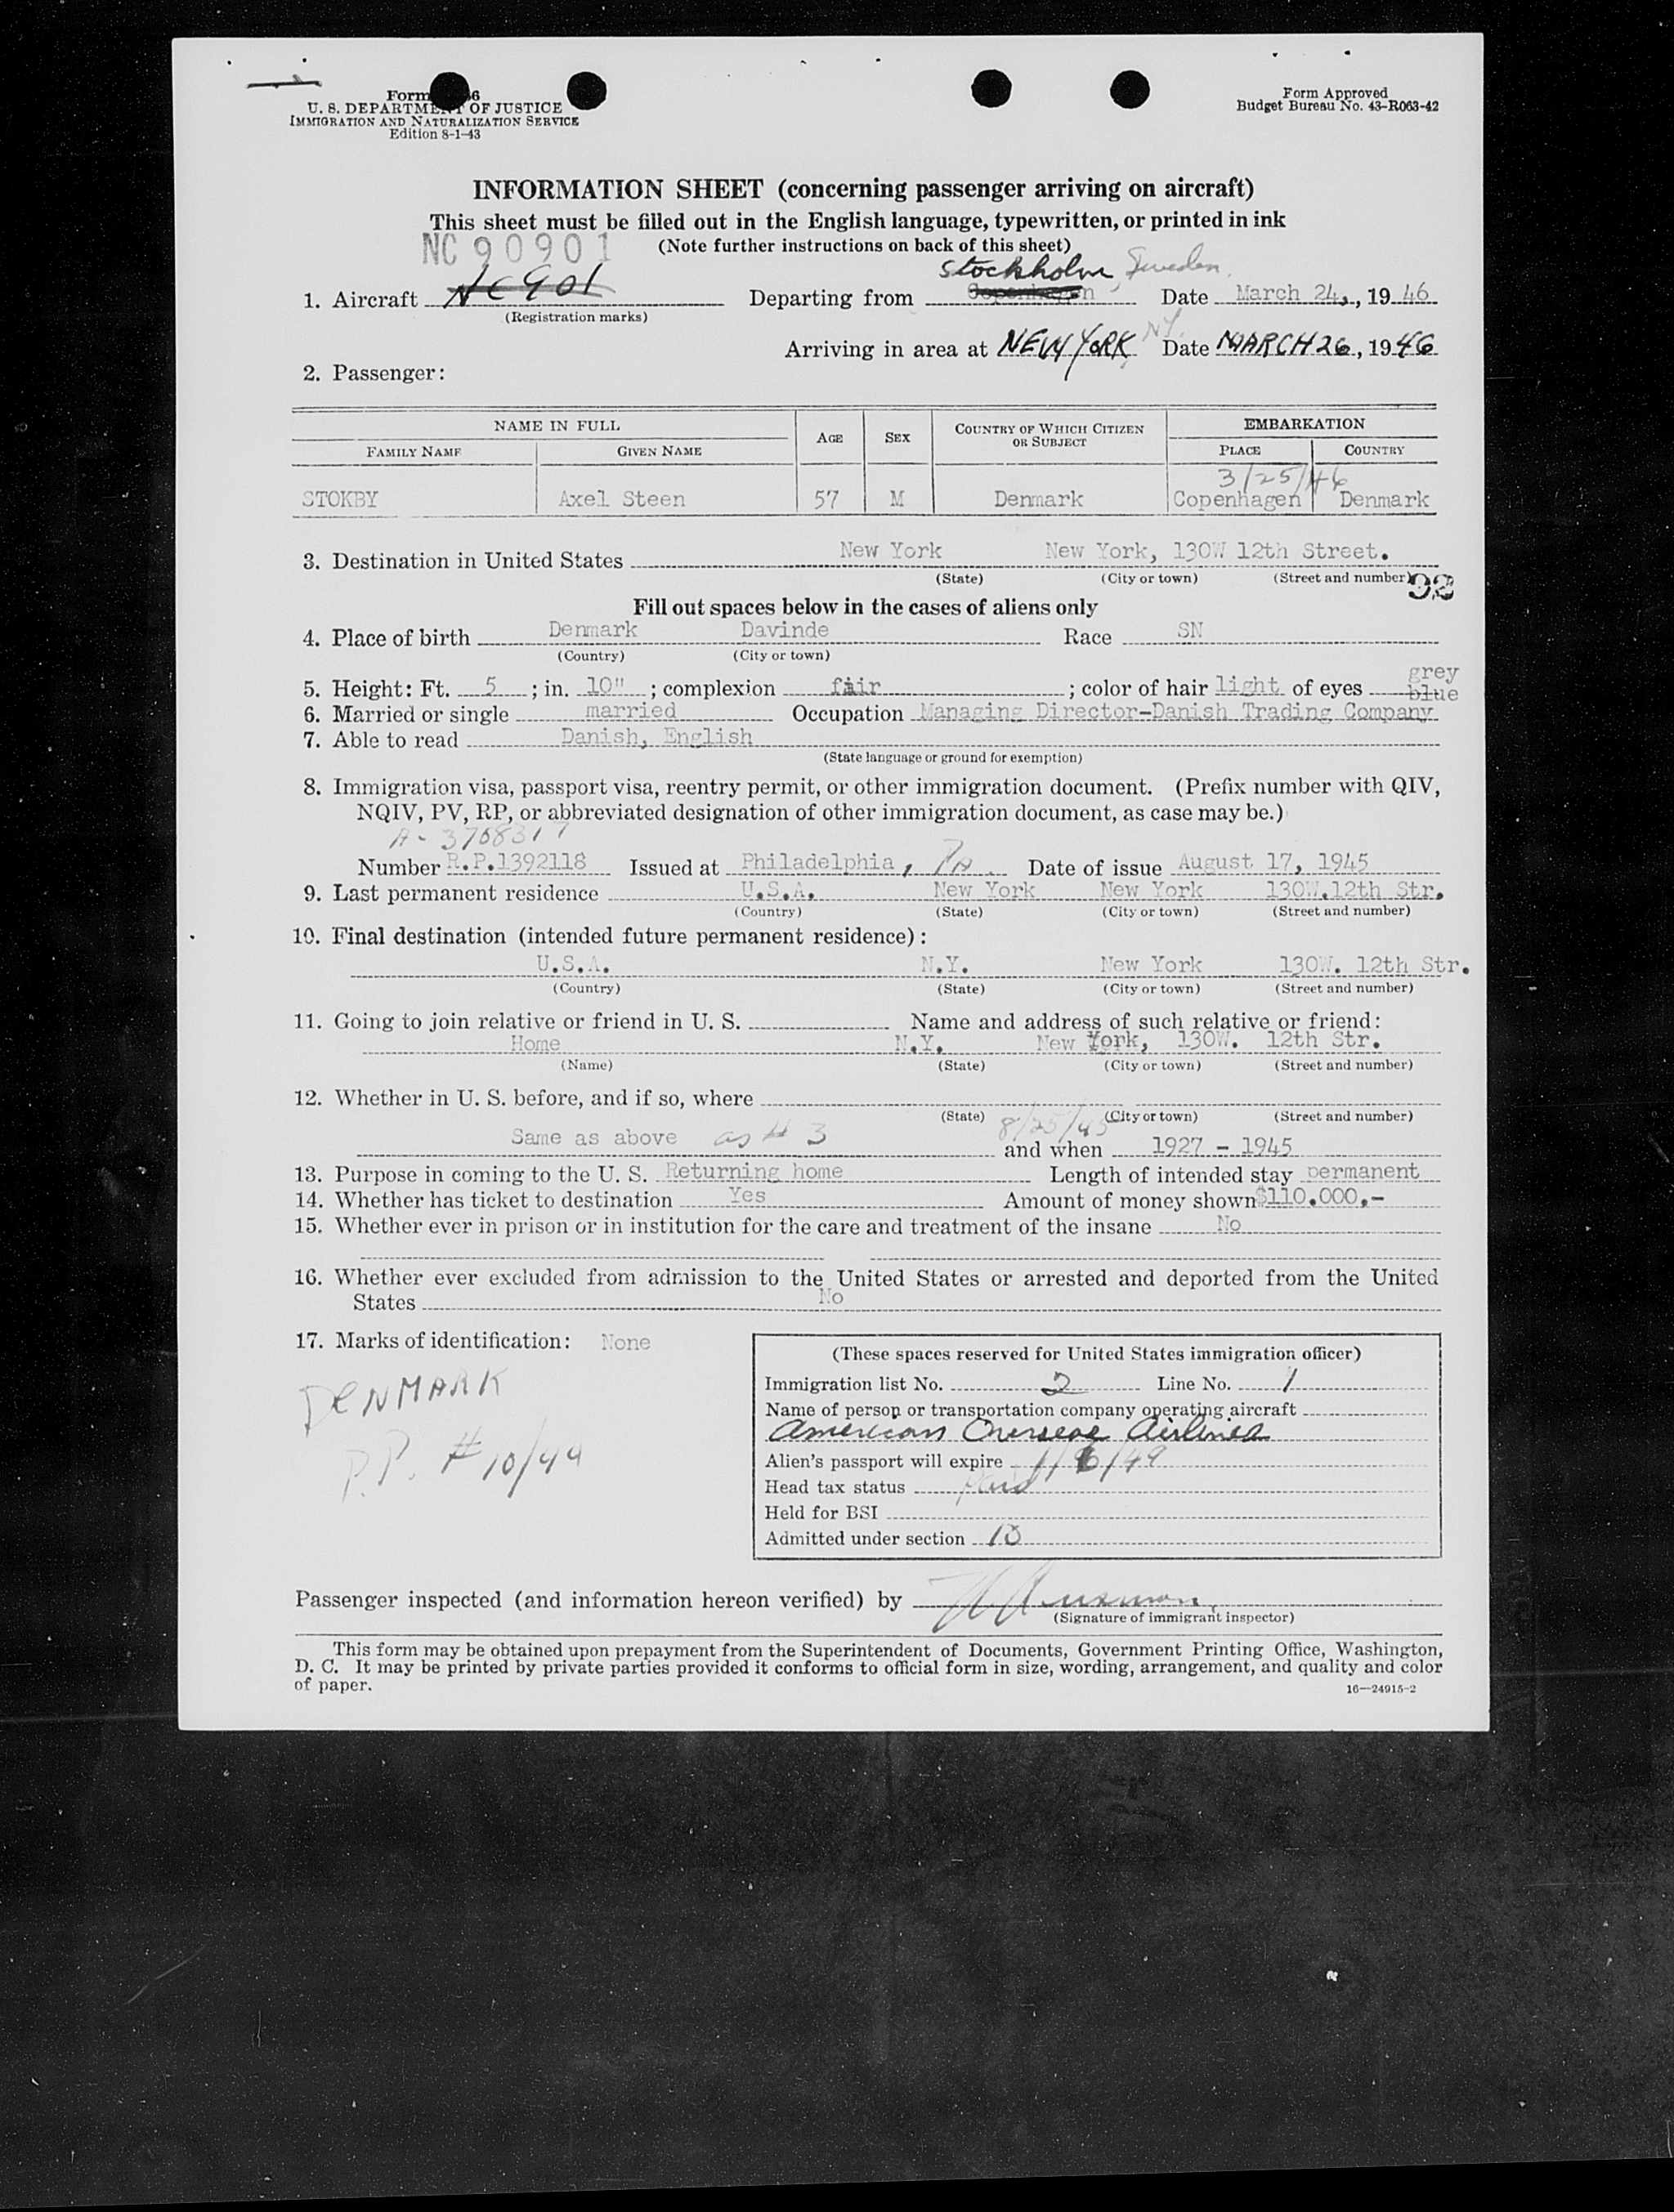 Form 6
U. S. DEPARTMENT OF JUSTICE
IMMIGRATION AND NATURALIZATION SERVICE
Edition 8-1-43
Form Approved
Budget Bureau No. 43-R063-42
INFORMATION SHEET (concerning passenger arriving on aircraft)
This sheet must be filled out in the English language, typewritten, or printed in ink
(Note further instructions on back of this sheet)
NC 90901
Stockholm, Sweden.
1. Aircraft NC901 Departing from Copenhagen Date March 24, , 1946
(Registration marks)
Arriving in area at NEW YORK, N.Y. Date MARCH 26, 1946
2. Passenger:
NAME IN FULL AGE SEX COUNTRY OF WHICH CITIZEN OR SUBJECT EMBARKATION
FAMILY NAME GIVEN NAME PLACE COUNTRY
3/25/46
STOKBY Axel Steen 57 M Denmark Copenhagen Denmark
3. Destination in United States New York New York, 130W 12th Street.
(State) (City or town) (Street and number)
92
Fill out spaces below in the cases of aliens only
4. Place of birth Denmark Davinde Race SN
(Country) (City or town)
grey
5. Height: Ft. 5 ; in. 10" ; complexion fair ; color of hair light of eyes blue
6. Married or single married Occupation Managing Director-Danish Trading Company
7. Able to read Danish, English
(State language or ground for exemption)
8. Immigration visa, passport visa, reentry permit, or other immigration document. (Prefix number with QIV,
NQIV, PV, RP, or abbreviated designation of other immigration document, as case may be.)
A- 3708317
Number R.P.1392118 Issued at Philadelphia, Pa. Date of issue August 17, 1945
9. Last permanent residence U.S.A. New York New York 130W.12th Str.
(Country) (State) (City or town) (Street and number)
10. Final destination (intended future permanent residence):
U.S.A. N.Y. New York 130W. 12th Str.
(Country) (State) (City or town) (Street and number)
11. Going to join relative or friend in U. S. Name and address of such relative or friend:
Home N.Y. New York, 130W. 12th Str.
(Name) (State) (City or town) (Street and number)
12. Whether in U. S. before, and if so, where
(State) (City or town) (Street and number)
8/25/45
Same as above as # 3 and when 1927 - 1945
13. Purpose in coming to the U. S. Returning home Length of intended stay permanent
14. Whether has ticket to destination Yes Amount of money shown $110.000.-
15. Whether ever in prison or in institution for the care and treatment of the insane No
16. Whether ever excluded from admission to the United States or arrested and deported from the United
States No
17. Marks of identification: None
DENMARK
P.P. # 10/44
(These spaces reserved for United States immigration officer)
Immigration list No. 2 Line No. 1
Name of person or transportation company operating aircraft
American Overseas Airlines
Alien's passport will expire 1/6/49
Head tax status Paid
Held for BSI
Admitted under section 10
Passenger inspected (and information hereon verified) by
(Signature of immigrant inspector)
This form may be obtained upon prepayment from the Superintendent of Documents, Government Printing Office, Washington,
D. C. It may be printed by private parties provided it conforms to official form in size, wording, arrangement, and quality and color
of paper.
16—24915-2